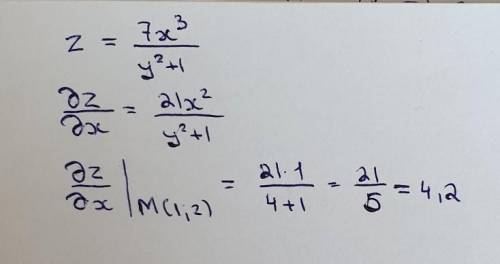 z = 7x³/(y²+1)
∂z/∂x = 21x²/(y²+1)
∂z/∂x |M(1;2) = 21·1/(4+1) = 21/5 = 4,2